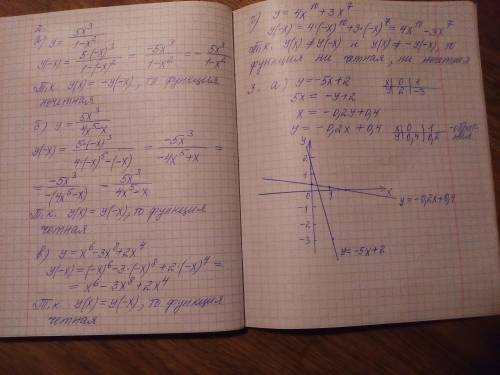 2.
а) y = 5x³/(1-x²)
y(-x) = 5·(-x)³/(1-(-x)²) = -5x³/(1-x²) = - 5x³/(1-x²)
Т.к. y(x) = -y(-x), то функция
нечетная
б) y = 5x³/(4x⁵-x)
y(-x) = 5·(-x)³/(4·(-x)⁵-(-x)) = -5x³/(-4x⁵+x) =
= -5x³/(-(4x⁵-x)) = 5x³/(4x⁵-x)
Т.к. y(x) = y(-x), то функция
четная
в) y = x⁶-3x⁸+2x⁴
y(-x) = (-x)⁶-3·(-x)⁸+2·(-x)⁴ =
= x⁶-3x⁸+2x⁴
Т.к. y(x) = y(-x), то функция
четная
г) y = 4x¹⁰+3x⁷
y(-x) = 4·(-x)¹⁰+3·(-x)⁷ = 4x¹⁰-3x⁷
Т.к. y(x) ≠ y(-x) и y(x) ≠ -y(-x), то
функция ни четная, ни нечетная
3. а) y = -5x+2
x 0 1
y 2 -3
5x = -y+2
x = -0,2y+0,4
y = -0,2x+0,4
x 0 1
y 0,4 0,2
- обратная
y
2
1
0 1 x
-1
-2
-3
y = -0,2x+0,4
y = -5x+2